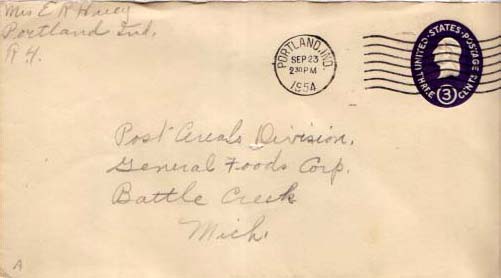 Mrs E R Huey
Portland Ind.
R 4.
PORTLAND, IND.
SEP 23
2 30 PM
1954
UNITED·STATES·POSTAGE
THREE 3 CENTS
Post Cereals Division.
General Foods Corp.
Battle Creek
Mich.
A